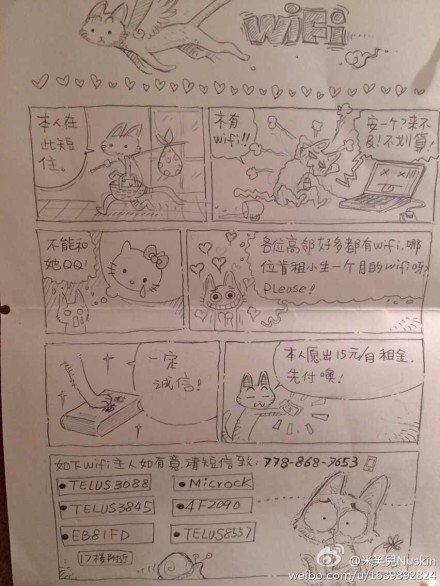 WiFi
本人在
此短
住。
木有
wifi!!
安一个?来不
及!不划算!
不能和
她QQ!
各位高邻好多都有wifi.哪
位肯租小生一个月的wifi呀?
please!
一定
诚信!
本人愿出15元/月租金.
先付噢!
如下wifi主人如有意,请短信致:778-868-7653
TELUS3088
MicrocK
TELUS3845
4F2090
EB81FD
TELUS8557
17楼附近
@米笑兒Nuskin
weibo.com/u/1539892824